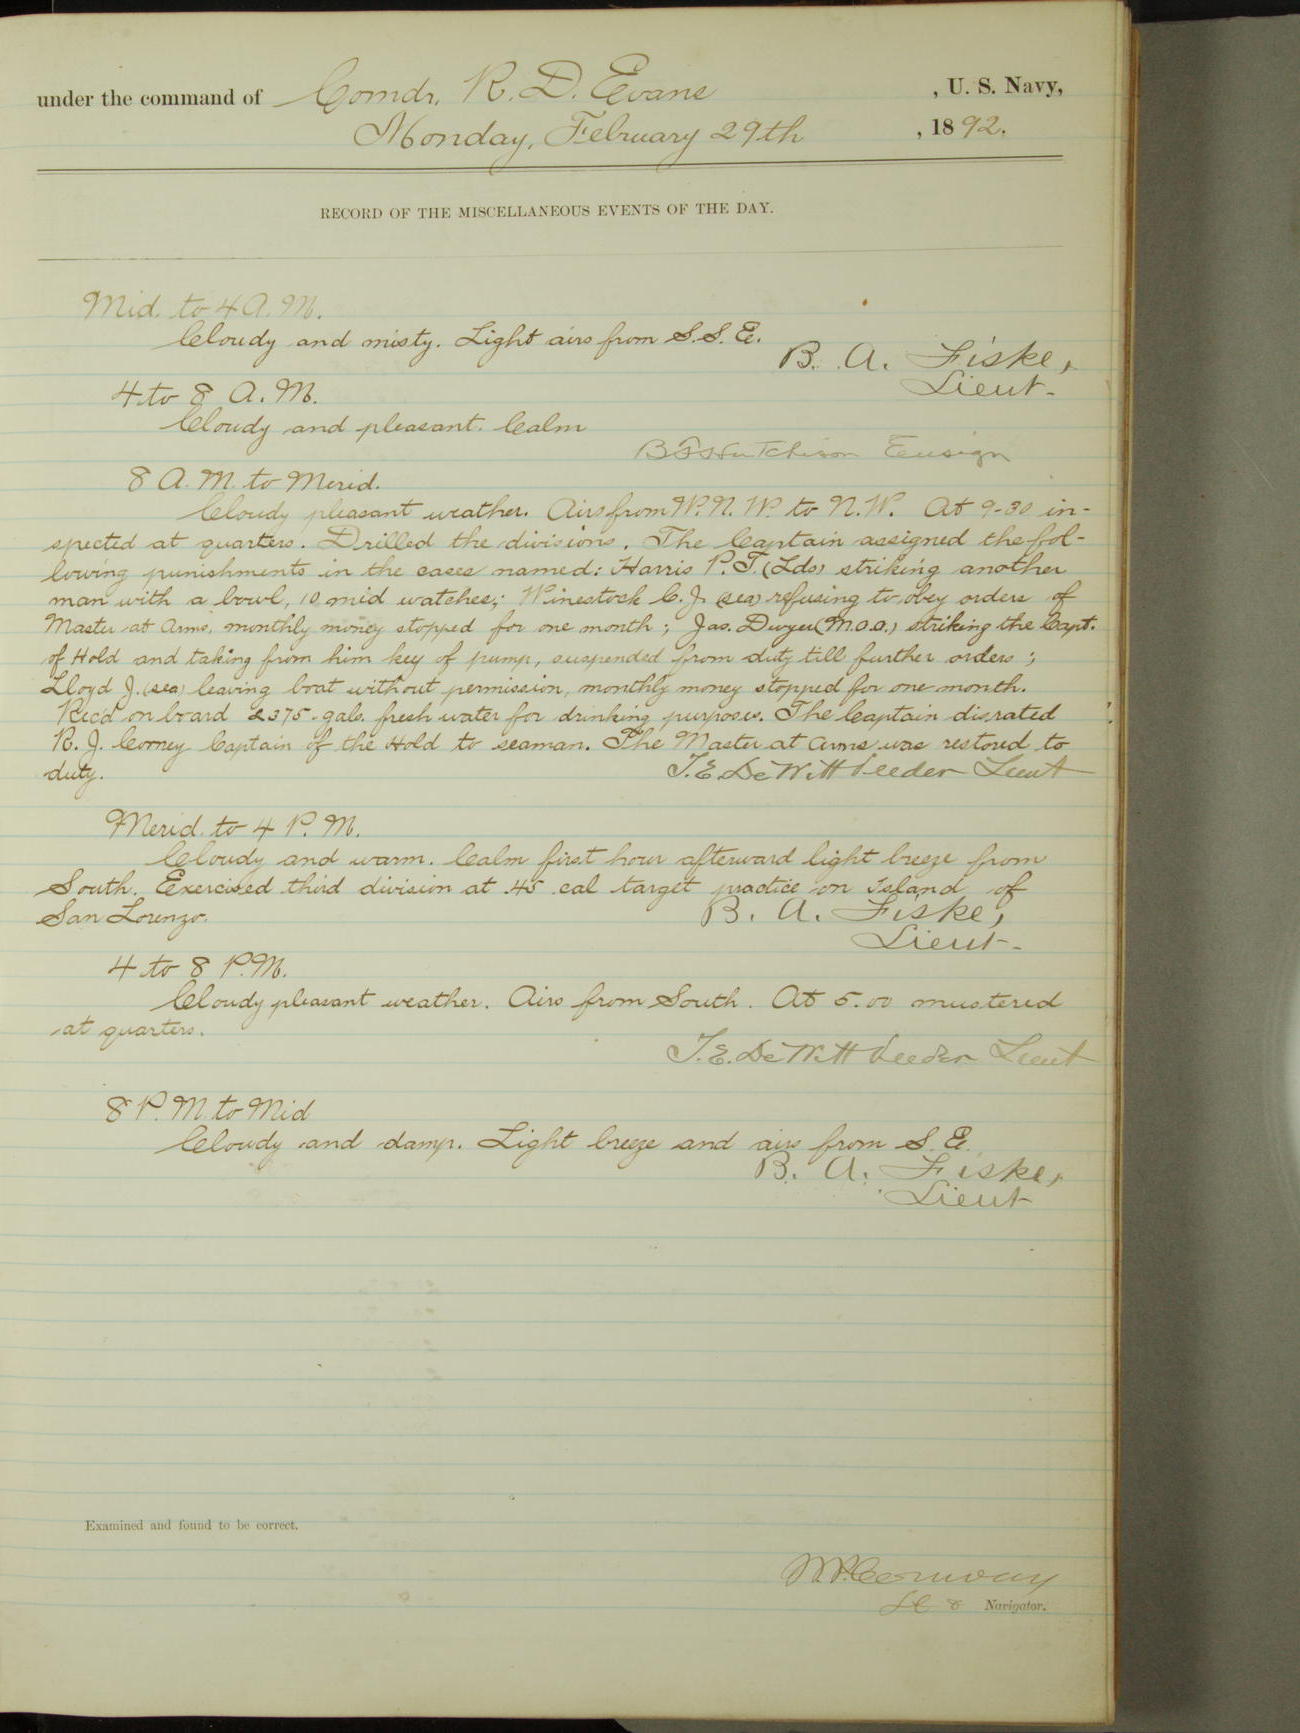 under the command of Comdr. R. D. Evans , U. S. Navy,
Monday, February 29th , 1892.
RECORD OF THE MISCELLANEOUS EVENTS OF THE DAY.
Mid. to 4 A.M.
Cloudy and misty. Light airs from S.S.E.
B. A. Fiske,
Lieut.
4 to 8 A.M.
Cloudy and pleasant. Calm
B F Hutchison Ensign
8 A.M. to Merid.
Cloudy pleasant weather. Airs from W.N.W. to N.W. At 9-30 in-
spected at quarters. Drilled the divisions. The Captain assigned the fol-
lowing punishments in the cases named: Harris P.T. (Lds) striking another
man with a bowl, 10 mid watches; Winestock C.J. (sea) refusing to obey orders of
Master at Arms, monthly money stopped for one month; Jas. Dwyer (M.O.O.) striking the Capt.
of Hold and taking from him key of pump, suspended from duty till further orders;
Lloyd J. (sea) leaving boat without permission, monthly money stopped for one month.
Rec'd on board 2375 gals. fresh water for drinking purposes. The Captain disrated
R. J. Corney Captain of the Hold to seaman. The Master at Arms was restored to
duty.
T.E. DeWitt Veeder Lieut
Merid. to 4 P.M.
Cloudy and warm. Calm first hour afterward light breeze from
South. Exercised third division at .45 cal target practice on Island of
San Lorenzo.
B. A. Fiske,
Lieut.
4 to 8 P.M.
Cloudy pleasant weather. Airs from South. At 5.00 mustered
at quarters.
T.E. DeWitt Veeder Lieut
8 P.M. to Mid
Cloudy and damp. Light breeze and airs from S.E.
B. A. Fiske,
Lieut
Examined and found to be correct.
W.P. Conway
Navigator.